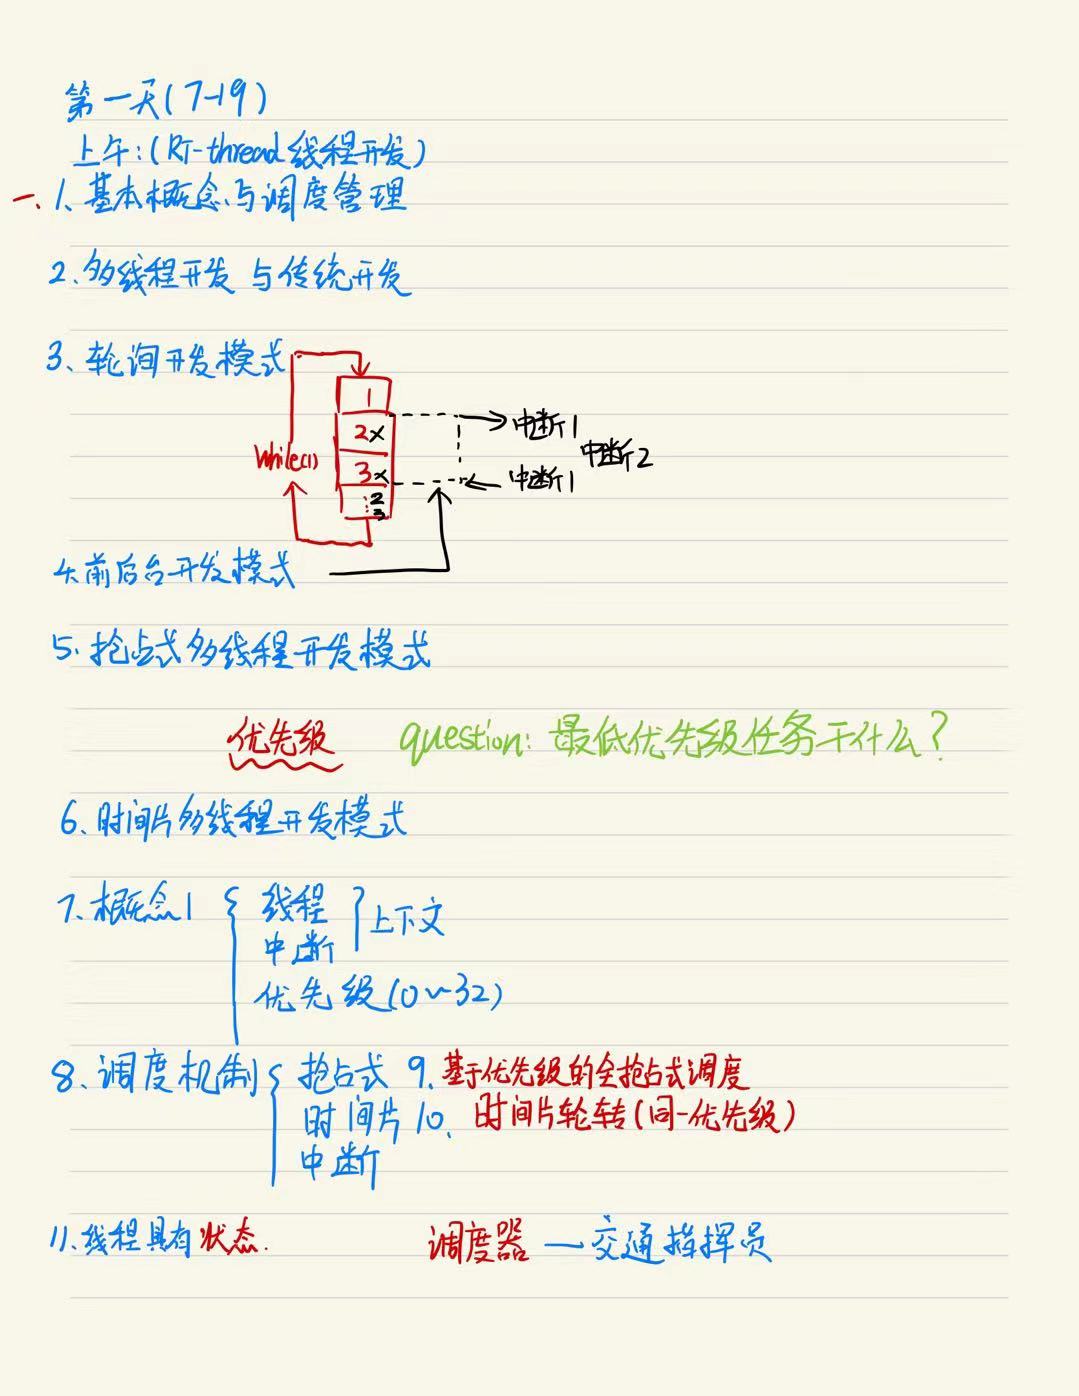 第一天(7-19)
上午:(RT-thread线程开发)
一、1、基本概念与调度管理
2、多线程开发与传统开发
3、轮询开发模式
1
2x
中断1
中断2
while(1)
3x
中断1
2
3
4、前后台开发模式
5、抢占式多线程开发模式
优先级 question: 最低优先级任务干什么?
6、时间片多线程开发模式
7、概念1 { 线程 } 上下文
中断
优先级(0~32)
8、调度机制 { 抢占式 9、基于优先级的全抢占式调度
时间片 10、时间片轮转(同一优先级)
中断
11、线程具有状态. 调度器 — 交通指挥员